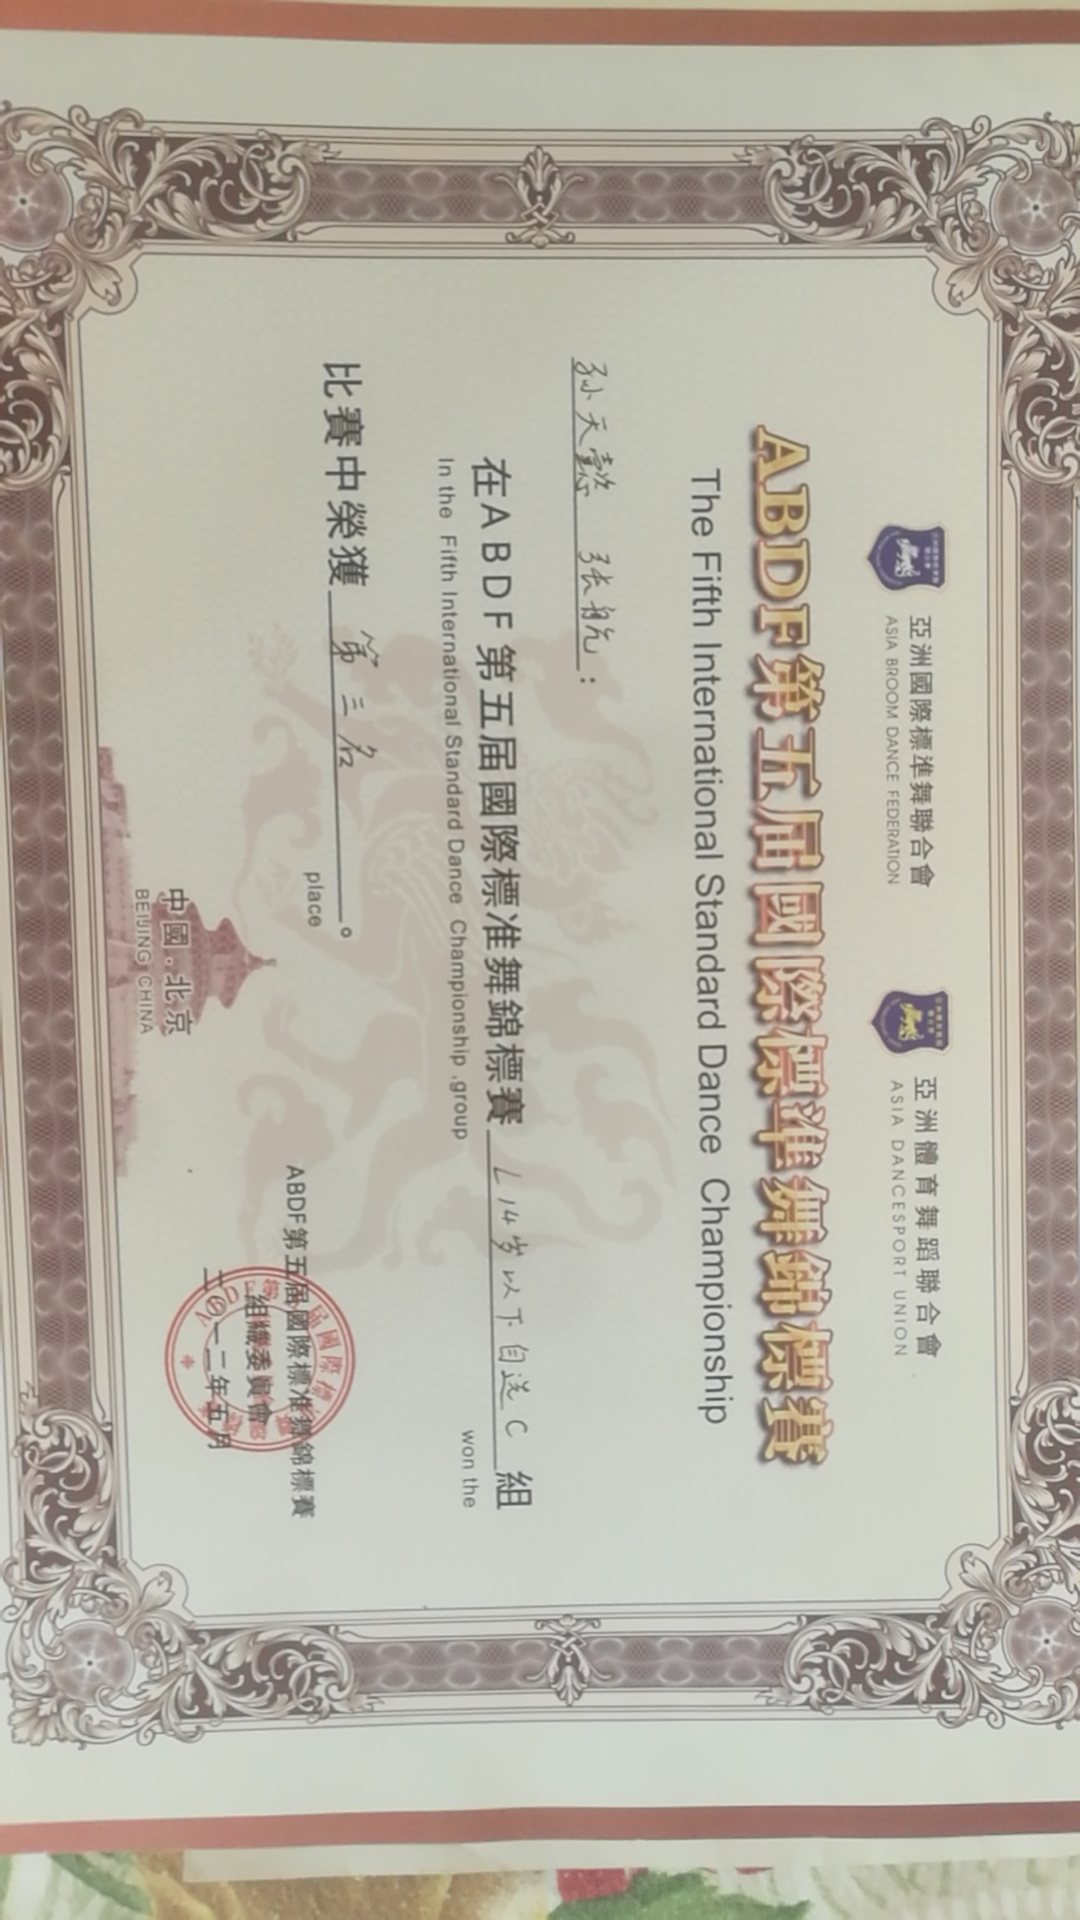 亞洲國際標準舞聯合會
ASIA BROOM DANCE FEDERATION
亞洲體育舞蹈聯合會
ASIA DANCESPORT UNION
ABDF第五届國際標準舞錦標賽
The Fifth International Standard Dance Championship
孙天懿 张航：
在ABDF第五届國際標准舞錦標賽 L14岁以下自选C 組
In the Fifth International Standard Dance Championship ,group won the
比賽中榮獲 第三名 。
place
ABDF第五届國際標准舞錦標賽
組織委員會
二〇一二年五月
中國.北京
BEIJING CHINA